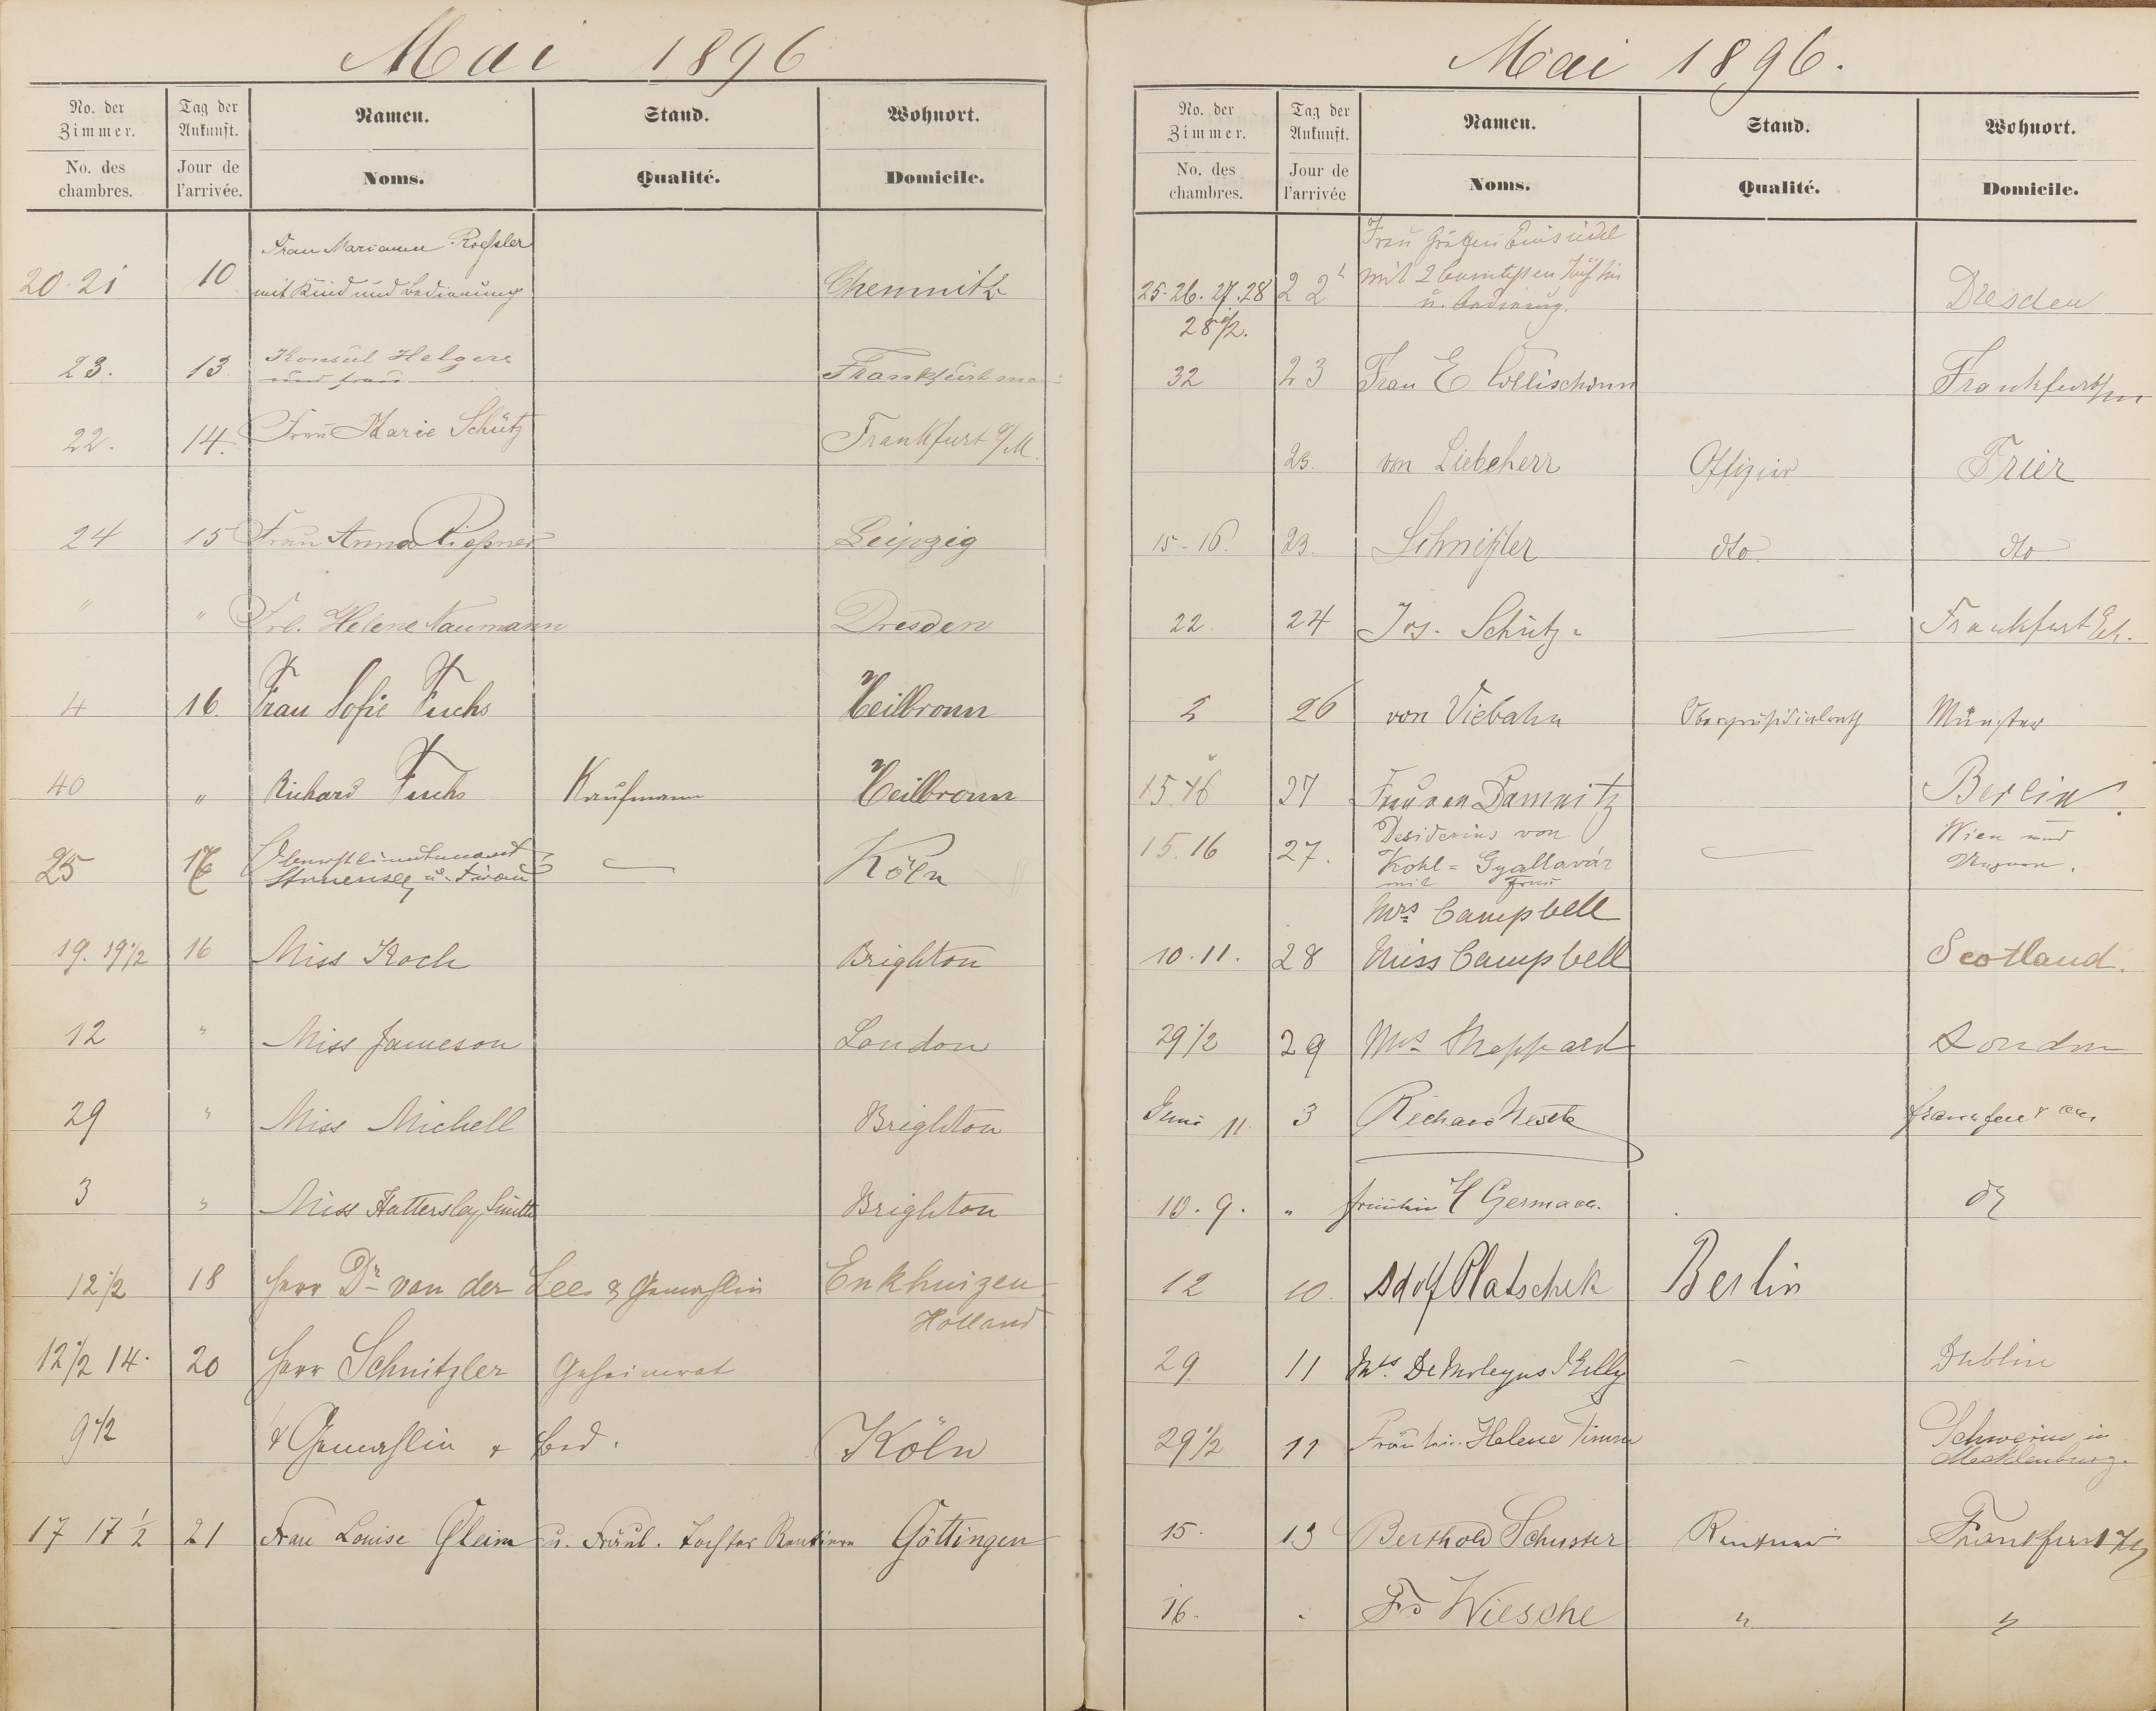 Mai 1896
No. der Zimmer. Tag der Ankunft. Namen. Stand. Wohnort.
No. des chambres. Jour de l'arrivée. Noms. Qualité. Domicile.
Frau Marianne Roeßler
20. 21 10 mit Kind und Bedienung Chemnitz
Konsul Helgers
23. 13. und Frau Frankfurt
22. 14. Frau Marie Schütz Frankfurt a/M.
24 15 Frau Anna Leipzig
" " Frl. Helene Naumann Dresden
4 16. Frau Sofie Fuchs Heilbronn
40 " Richard Fuchs Kaufmann Heilbronn
Oberstlieutenant
25 u. Frau — Köln
19. 19 1/2 16 Miss Koch Brighton
12 " Miss Jameson London
29 " Miss Michell Brighton
3 " Miss Hattersley Smith Brighton
12 1/2 18 Herr Dr van der Lee & Gemahlin Enkhuizen
Holland
12 1/2 14. 20 Herr Schnitzler Geheimrat
9 1/2 & Gemahlin & Bed. Köln
17 17 1/2 21 Frau Louise Gleim u. Fräul. Tochter Rentiere Göttingen
Mai 1896.
No. der Zimmer. Tag der Ankunft. Namen. Stand. Wohnort.
No. des chambres. Jour de l'arrivée Noms. Qualité. Domicile.
Frau Gräfin Einsiedel
25. 26. 27. 28 22 mit 2 Comtessen
28 1/2. u. Bedienung. Dresden
32 23 Frau E Collischonn Frankfurt
23. von Liebeherr Offizier Trier
15 - 16. 23. Schnitzler dto. dto
22 24 Jos. Schütz. — Frankfurt
2 26 von Viebahn Oberpräsidialrath Münster
15 16 27 Frau von Damnitz Berlin.
Desiderius von Wien und
15. 16 27. Kohl = Gyallavár — Ungarn.
mit Frau
Mrs Campbell
10. 11. 28 Miss Campbell Scotland.
29 1/2 29 Mrs Sheppard London
Juni 11. 3 Richard Nestle
10. 9. "
12 10. Adolf Platschek Berlin
29 11 Mrs. De Moleyns — Dublin
29 1/2 11 Fräulein Helene Timm Schwerin in
Mecklenburg.
15. 13 Berthold Schuster Rentner Frankfurt
16. " Wiesche " "